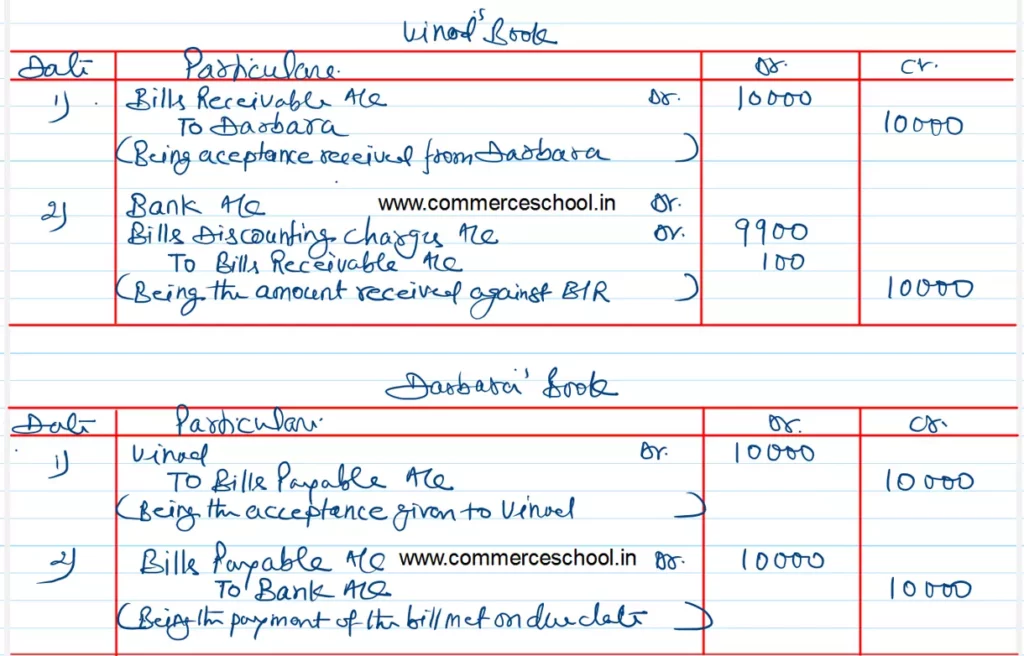 Vinod's Book
Date Particulars Dr. Cr.
1) Bills Receivable A/c Dr. 10000
To Darbara 10000
(Being aceptance received from Darbara )
2) Bank A/c www.commerceschool.in Dr.
Bills Discounting Charges A/c Dr. 9900
To Bills Receivable A/c 100
(Being the amount received against B/R ) 10000
Darbara's Book
Date Particulars Dr. Cr.
1) Vinod Dr. 10000
To Bills Payable A/c 10000
(Being the acceptance given to Vinod )
2) Bills Payable A/c www.commerceschool.in Dr. 10000
To Bank A/c 10000
(Being the payment of the bill met on due date )